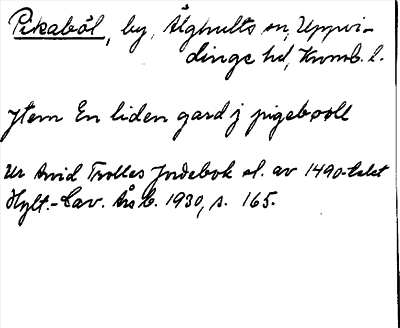 Pikaböl, by, Älghults sn, Uppvi-
dinge hd, Kronob. l.
Jtem En liden gard j pigebooll
Ur Arvid Trolles Jordebok sl. av 1490-talet
Hylt.-Cav. Årsb. 1930, s. 165.